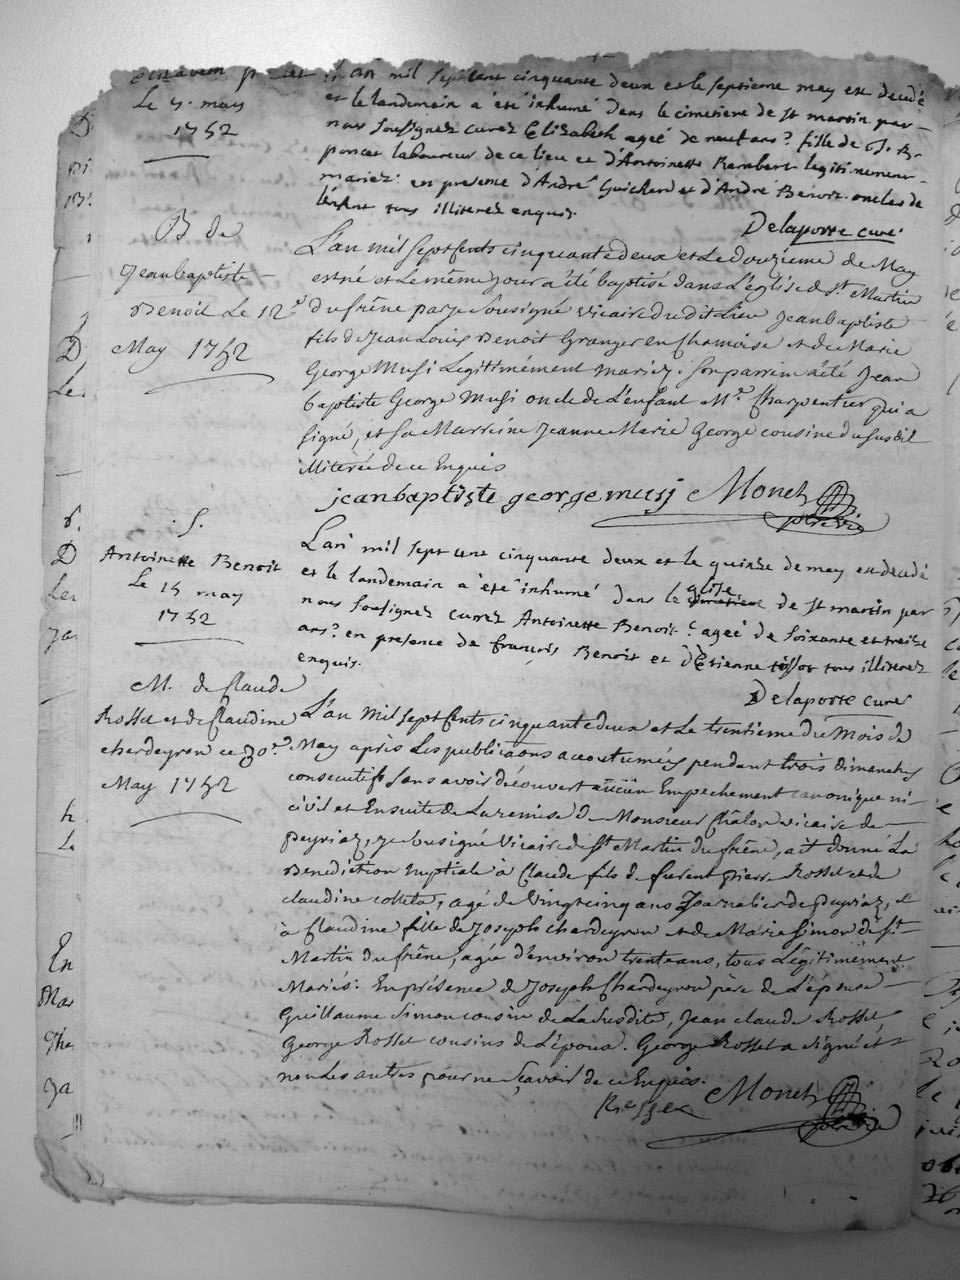 Le 7. may
1752
L'an mil sept cent cinquante deux et le septieme may est decedé
et le landemain a été inhumé dans le cimetiere de st martin par
nous soussignez curez Elizabeth ageé de neuf ans? fille de J. B.
poncet laboureur de ce lieu et d'Antoinette Rambert legitimement
mariez. en presence d'André Guichard et d'André Benoit oncles de
l'enfant tous illiterez enquis.
Delaporte curé
B de
Jeanbaptiste
Benoit Le 12e
May 1752
L'an mil sept cents cinquante deux et Le douzieme de May
est né et Le même jour a été baptisé dans L'église de St. Martin
du frêne par je soussigné vicaire du dit Lieu Jeanbaptiste
fils de Jean Louis Benoit Granger en Chamoise et de Marie
George Musi Legitimément mariez. son parrein a été Jean
baptiste George Musi oncle de L'enfant Me. Charpentier qui a
signé, et sa Marreine Jeanne Marie George cousine du susdit
illiterée de ce Enquis
jeanbaptiste georgemusj Monet
ptre vic
S.
Antoinette Benoit
Le 15 may
1752
L'an mil sept cent cinquante deux et le quinze de may est decedé
et le landemain a été inhumé dans le cimetiere glise de st martin par
nous soussignez curez Antoinette Benoit? ageé de soixante et treize
ans? en presence de francois Benoit et d'Etienne tissot tous illiterez
enquis.
Delaporte curé
M. de Claude
Rosset et de Claudine
chardeyron ce 30e.
May 1752
L'an Mil sept cents cinquante deux et Le trentieme du Mois de
May après Les publications accoutumées pendant trois dimanches
consecutifs sans avoir découvert aucun Empechement canonique ni
civil et Ensuite de La remise de Monsieur Châlon vicaire de
peyriaz, je soussigné Vicaire de St Martin du frêne, ait donné La
Benediction nuptiale à Claude fils de furent pierre Rosset et de
claudine colleta, agé de Vingtcinq ans Journalier de peyriaz, et
à Claudine fille de Joseph chardeyron et de Marie Simon de St
Martin du frêne, agée d'environ trente ans, tous Légitimément
Mariés. En présence de Joseph Chardeyron père de L'épouse
Guillaume Simon cousin de La susdite, Jean claude Rosset,
George Rosset cousins de L'époux. George Rosset a signé et
non Les autres pour ne sçavoir de ce Enquis.
Monet
ptre vic